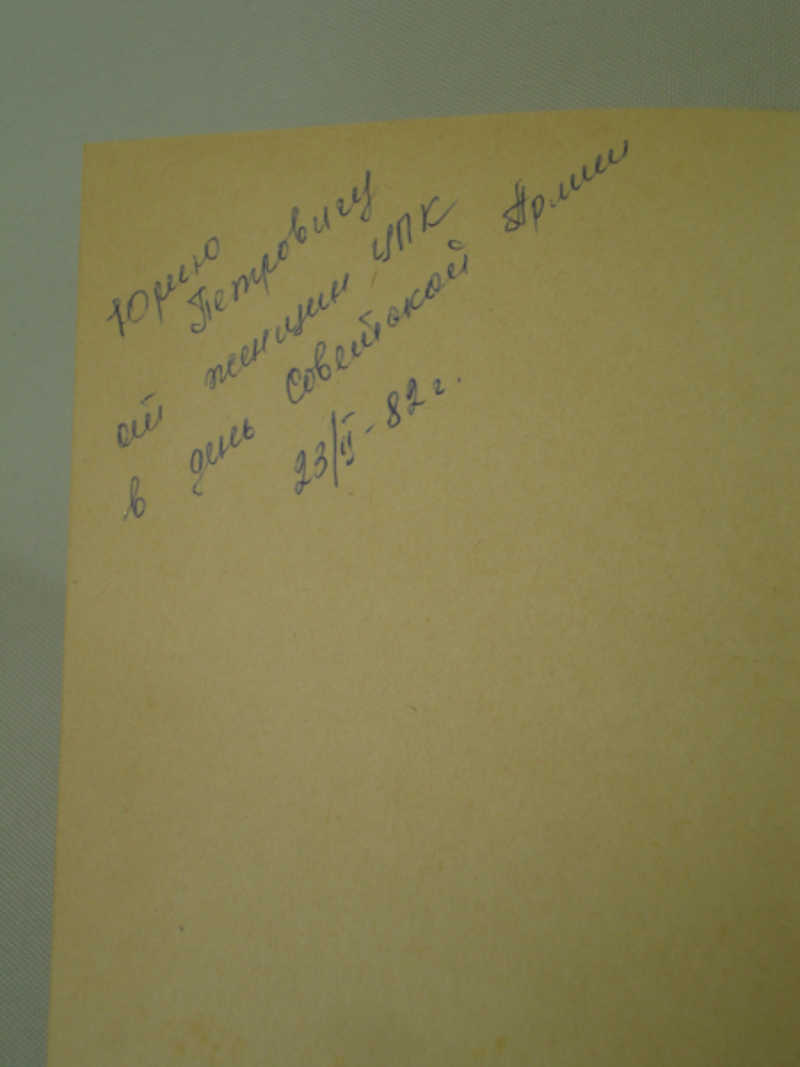 Юрию
Петровичу
от женщин УПК
в день Советской Армии
23/II-82 г.